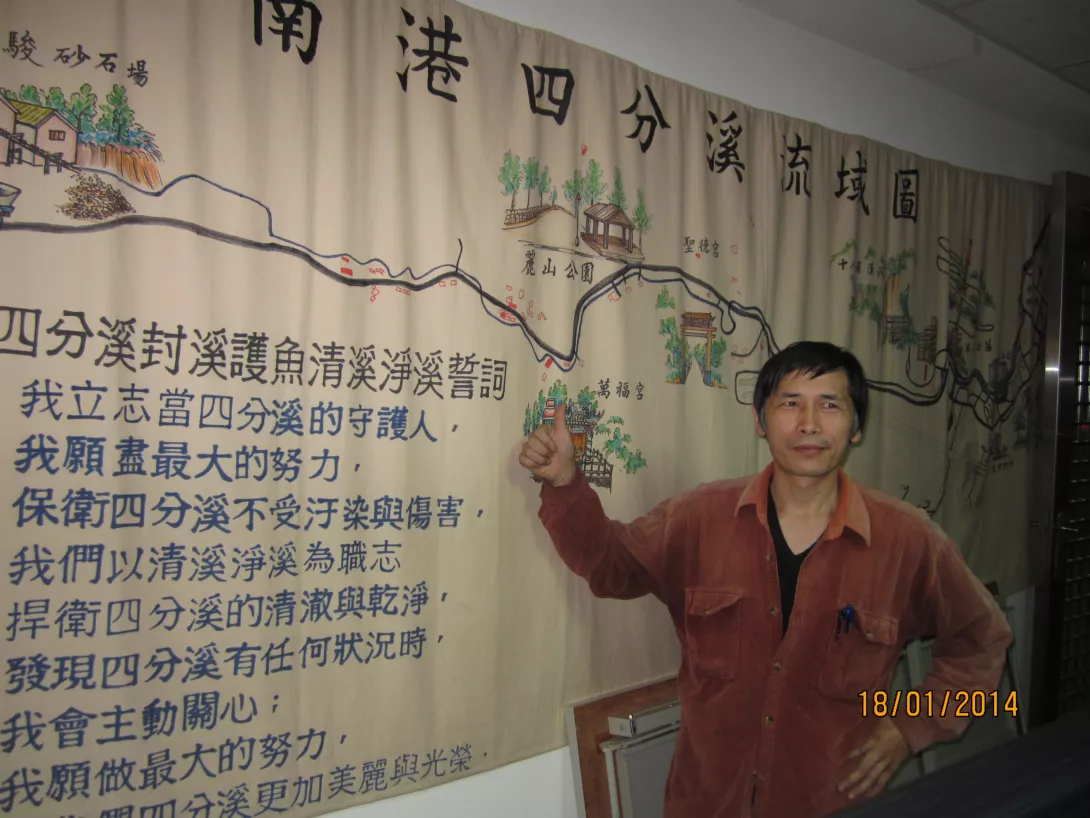 南港四分溪流域圖
駿砂石場
麗山公園
聖德宮
萬福宮
四分溪封溪護魚清溪淨溪誓詞
我立志當四分溪的守護人，
我願盡最大的努力，
保衛四分溪不受汙染與傷害，
我們以清溪淨溪為職志
捍衛四分溪的清澈與乾淨，
發現四分溪有任何狀況時，
我會主動關心；
我願做最大的努力，
們四分溪更加美麗與光榮．
18/01/2014